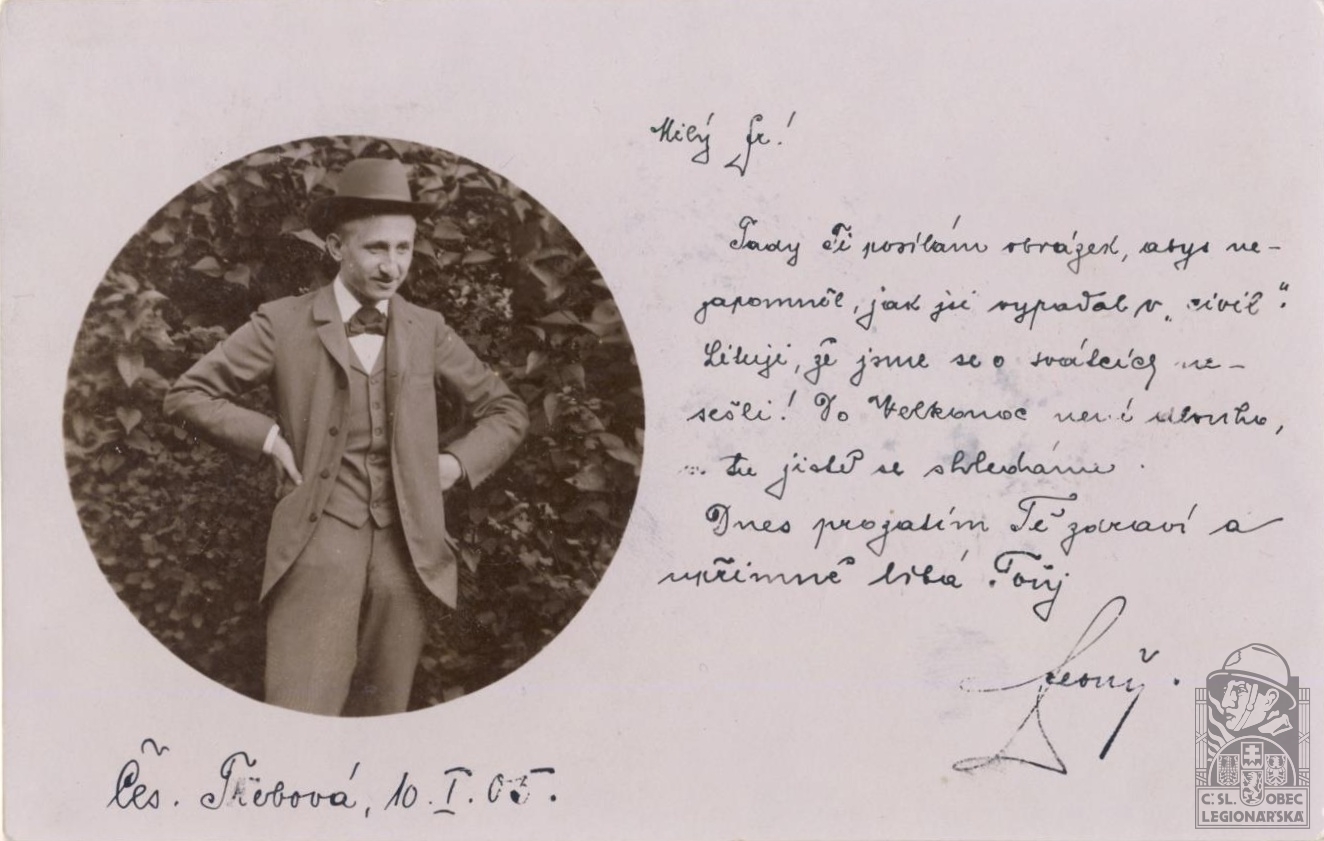 Milý Fr.!
Tady Ti posílám obrázek, abys ne-
zapomněl, jak jsi vypadal v „civil“.
Lituji, že jsme se o svátcích ne-
sešli! Do Velkonoc není dlouho,
tu jistě se shledáme.
Dnes prozatím Tě zdraví a
upřímně líbá Tvůj
Čes. Třebová, 10. I. 05.
Č.SL. OBEC
LEGIONÁŘSKÁ